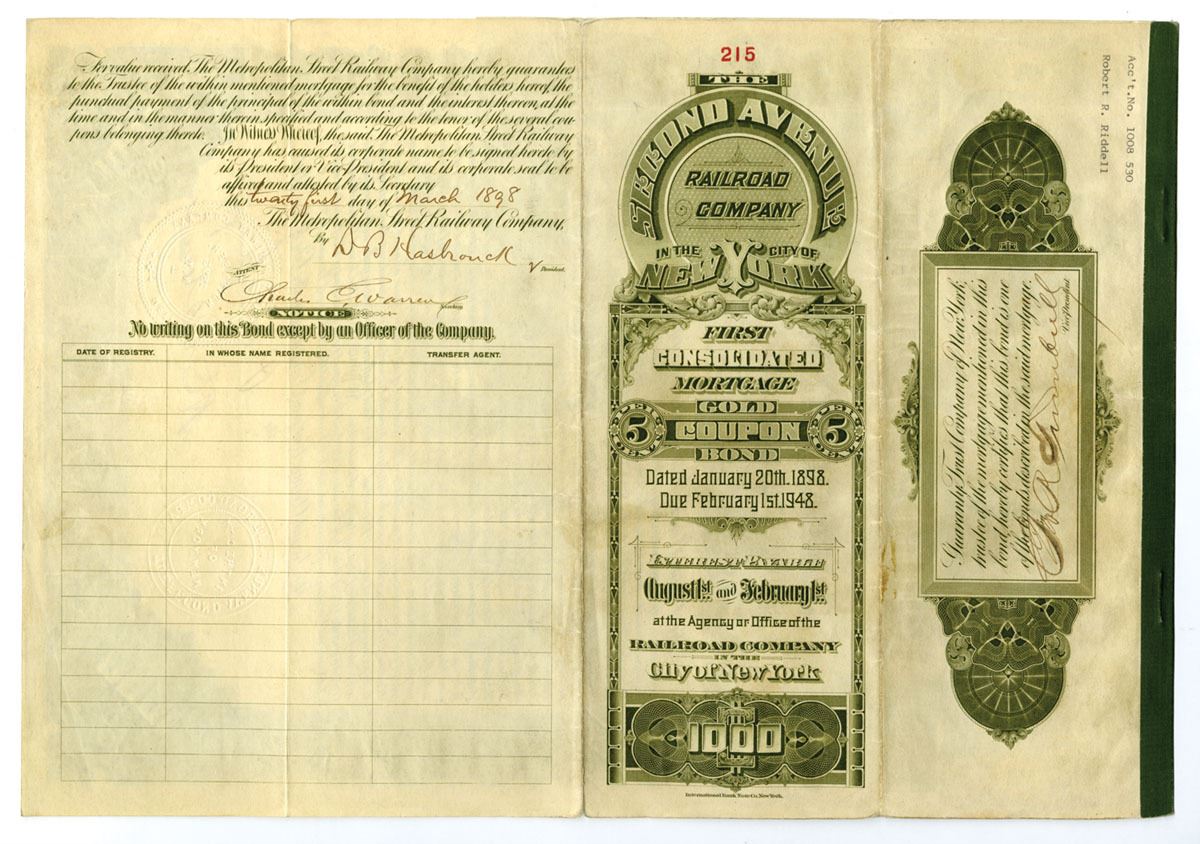 For value received, The Metropolitan Street Railway Company hereby guarantees
to the Trustee of the within mentioned mortgage for the benefit of the holders hereof, the
punctual payment of the principal of the within bond and the interest thereon, at the
time and in the manner therein specified and according to the tenor of the several cou-
pons belonging thereto. In Witness Whereof, the said The Metropolitan Street Railway
Company has caused its corporate name to be signed hereto by
its President or Vice-President and its corporate seal to be
affixed and attested by its Secretary
this twenty first day of March 1898
The Metropolitan Street Railway Company,
By D B Hasbrouck V President.
ATTEST
Charles E Warren Secretary
NOTICE
No writing on this Bond except by an Officer of the Company.
DATE OF REGISTRY. IN WHOSE NAME REGISTERED. TRANSFER AGENT.
215
THE
SECOND AVENUE
RAILROAD
COMPANY
IN THE CITY OF
NEW YORK
FIRST
CONSOLIDATED
MORTGAGE
GOLD
5 PER CENT COUPON 5 PER CENT
BOND
Dated January 20th. 1898.
Due February 1st. 1948.
INTEREST PAYABLE
August 1st. and February 1st.
at the Agency or Office of the
RAILROAD COMPANY
IN THE
City of New York
$1000
International Bank Note Co. New York.
Guaranty Trust Company of New York,
trustee of the mortgage mentioned in this
bond, hereby certifies that this bond is one
of the bonds described in the said mortgage.
Vice President
Acc't. No. 1008 530
Robert R. Riddell